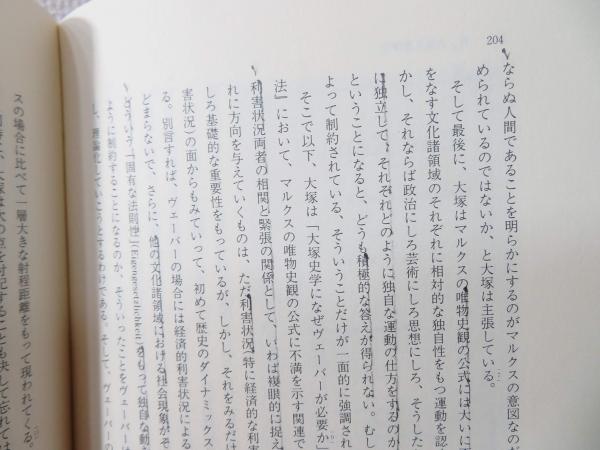 204
ならぬ人間であることを明らかにするのがマルクスの意図なのだ
められているのではないか、と大塚は主張している。
そして最後に、大塚はマルクスの唯物史観の公式には大いに
をなす文化諸領域のそれぞれに相対的な独自性をもつ運動を認
かし、それならば政治にしろ芸術にしろ思想にしろ、そうした
に独立して、それぞれどのように独自な運動の仕方をするのか
ということになると、どうも積極的な答えが得られない。むし
よって制約されている、そういうことだけが一面的に強調され
そこで以下、大塚は「大塚史学になぜヴェーバーが必要か」
法』において、マルクスの唯物史観の公式に不満を示す関連で
利害状況両者の相関と緊張の関係として、いわば複眼的に捉え
れに方向を与えていくものは、ただ利害状況(特に経済的な利害
しろ基礎的な重要性をもっているが、しかし、それをみるだけ
害状況)の面からもみていって、初めて歴史のダイナミックス
る。別言すれば、ヴェーバーの場合には経済的利害状況による
どまらないで、さらに、他の文化諸領域における社会現象がそ
どういう「固有な法則性」(Eigengesetzlichkeit)をもって独自な動
ように制約することになるのか、そういったことをヴェーバーは
し、理論化していこうとするわけである。そして、ヴェーバーの
スの場合に比べて一層大きな射程距離をもって現われてくる。
大塚は次の点を付記することも決して忘れては